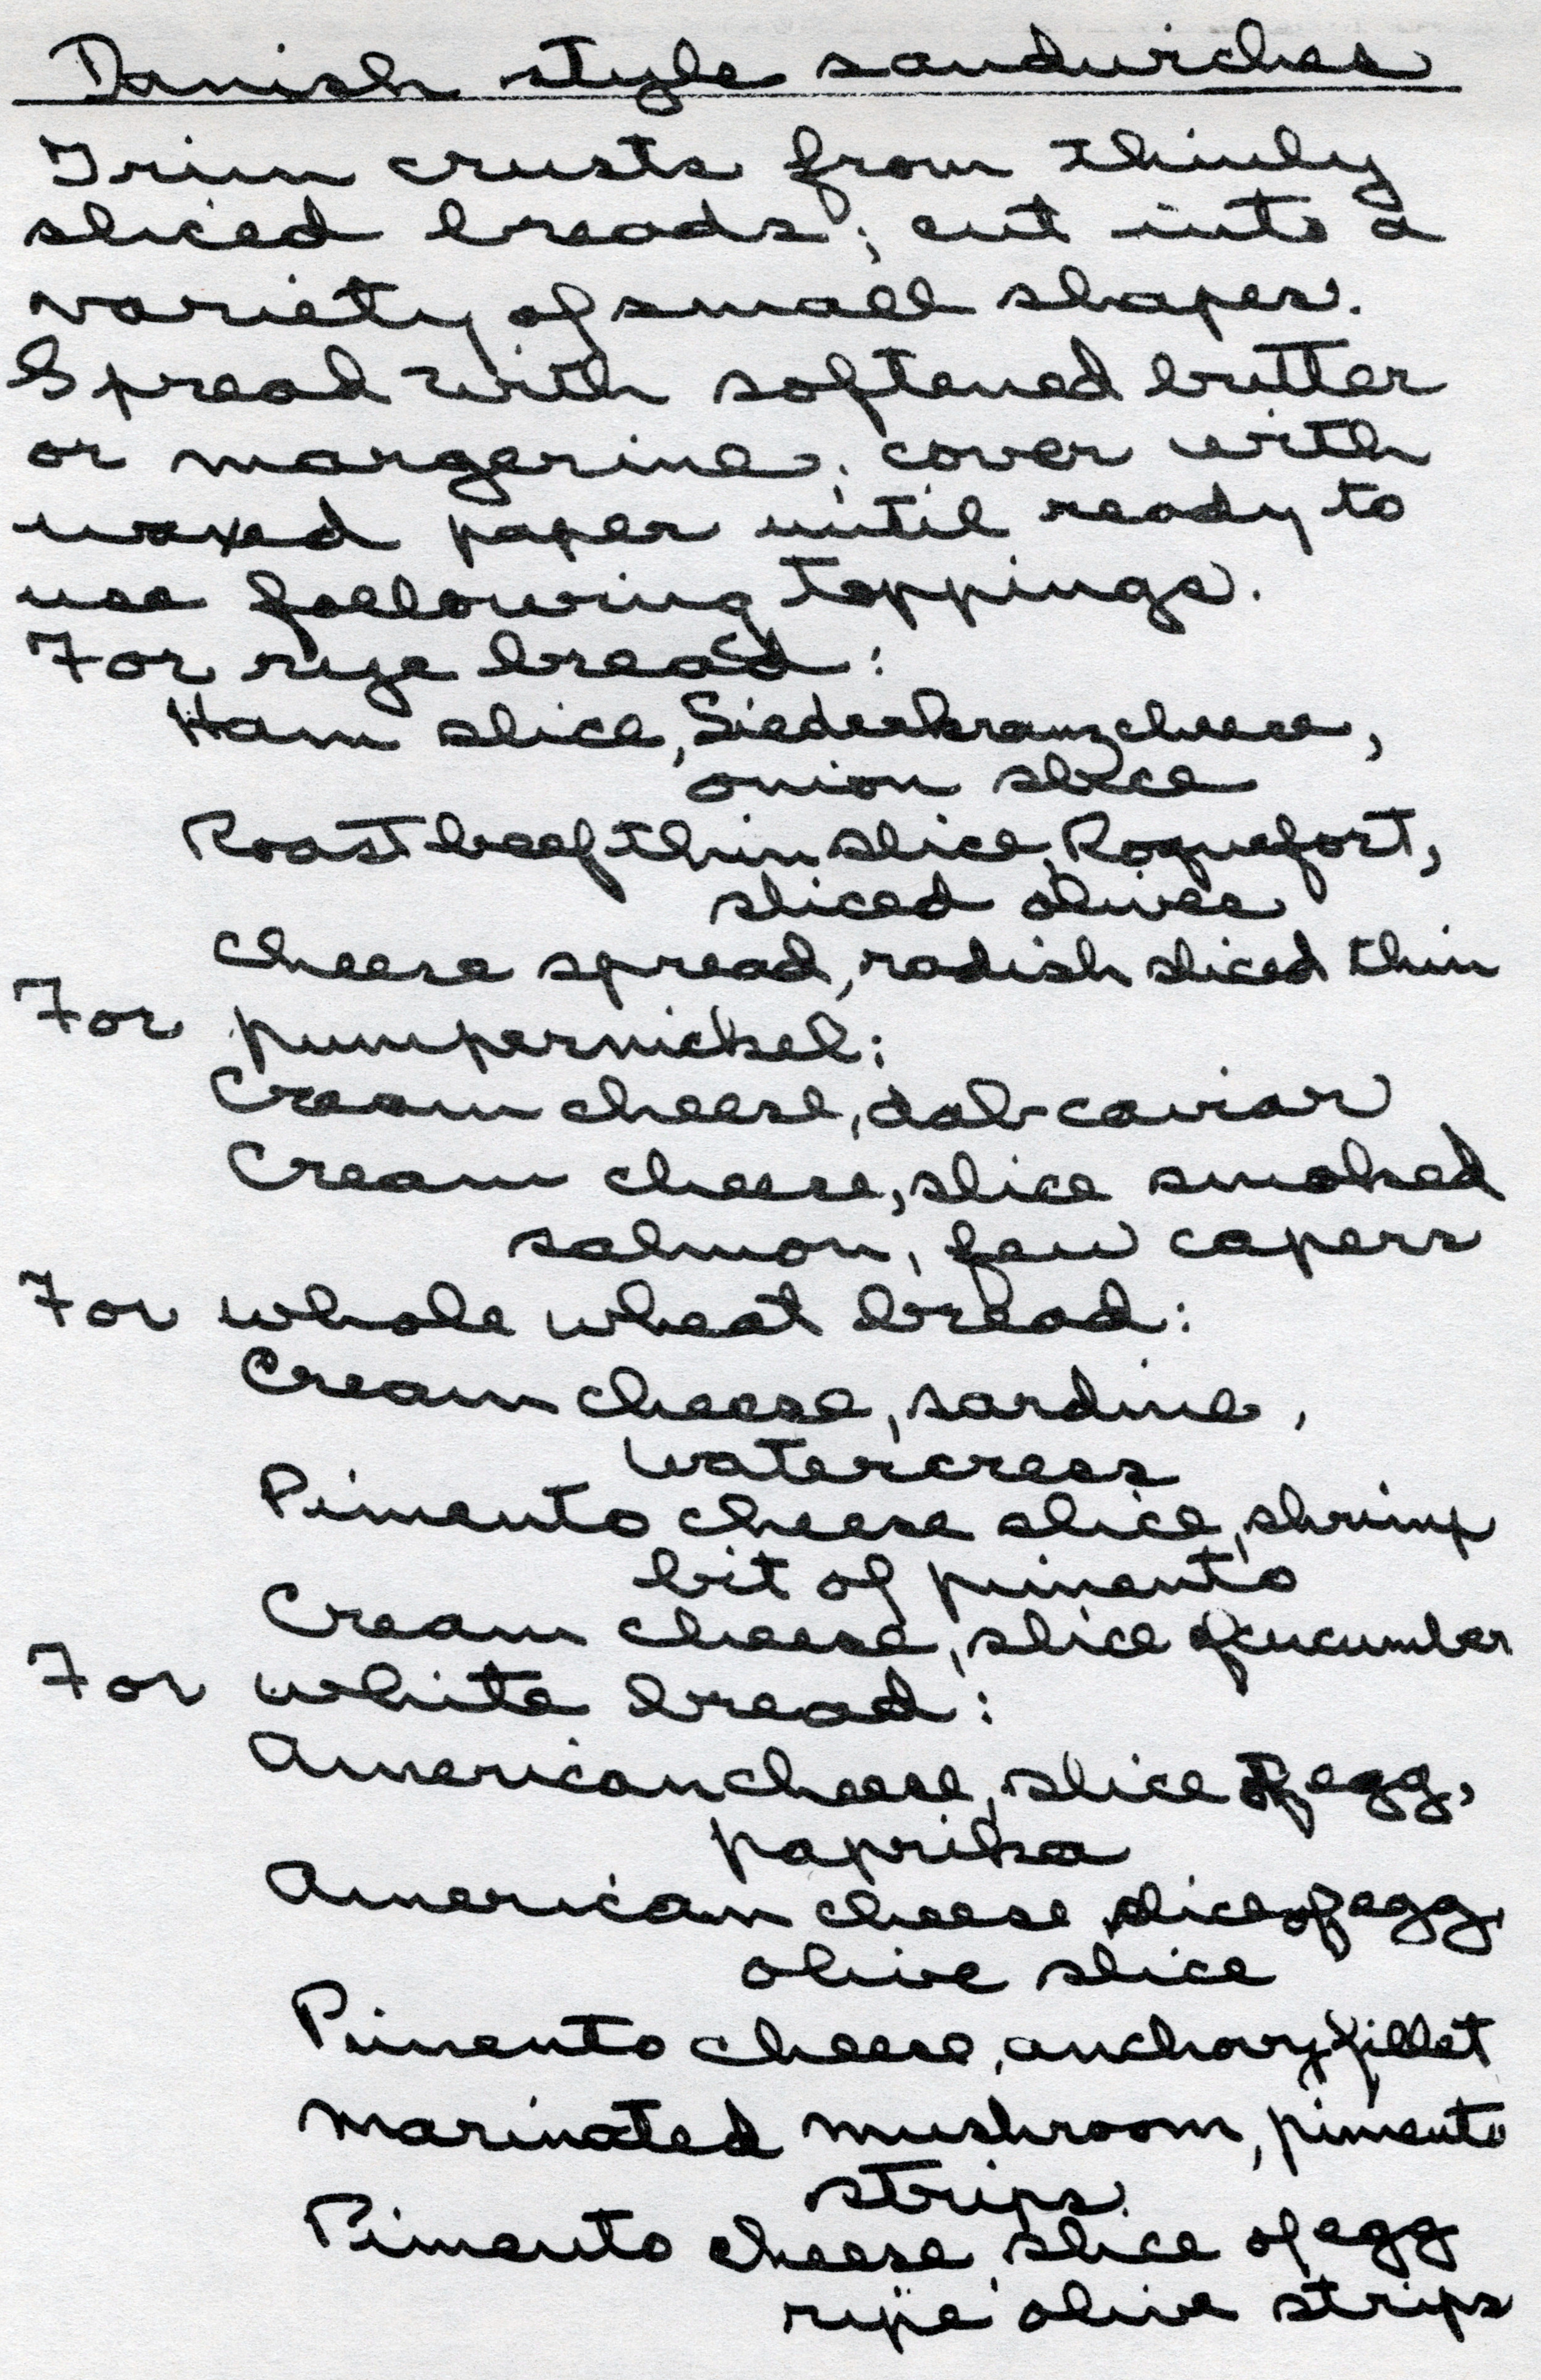 Danish style sandwiches
Trim crusts from thinly
sliced breads; cut into a
variety of small shapes.
Spread with softened butter
or margerine; cover with
waxed paper until ready to
use following toppings.
For rye bread:
Ham slice, Siederkranz cheese,
onion slice
Roast beef thin slice, Roquefort,
sliced olives
Cheese spread, radish sliced thin
For pumpernickel:
Cream cheese, dab caviar
Cream cheese, slice smoked
salmon, few capers
For whole wheat bread:
Cream cheese, sardine,
watercress
Pimento cheese slice, shrimp
bit of pimento
Cream cheese, slice of cucumber
For white bread:
American cheese, slice of egg,
paprika
American cheese, slice of egg,
olive slice
Pimento cheese, anchovy fillet
Marinated mushroom, pimento
strips
Pimento cheese, slice of egg
ripe olive strips